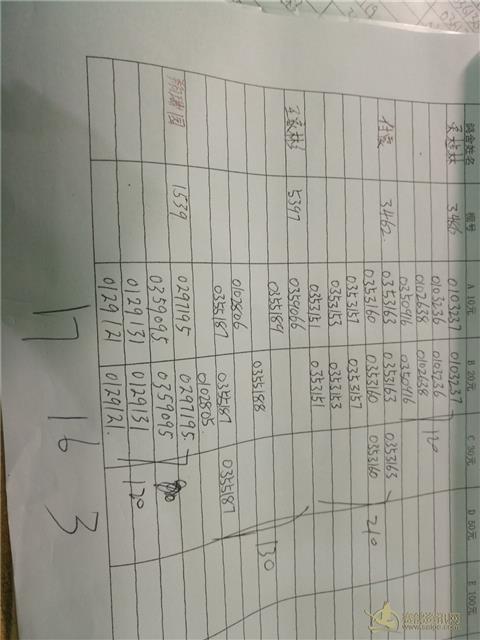 鸽舍姓名 棚号 A 10元 B 20元 C 30元 D 50元 E 100元
3486 0103237 0103237
0103236 0103236
0102638 0102638 120
0350416 0350416
3462 0353163 0353163 0353163
0353160 0353160 0353160 210
0353157 0353157
0353153 0353153
0353151 0353151
5397 0355066
0355189
0355188 130
0102806
0355187 0355187 0355187
0102805
1539 0297195 0297195
0359095 0359095
0129131 0129131 120
0129121 0129121
17 16 3